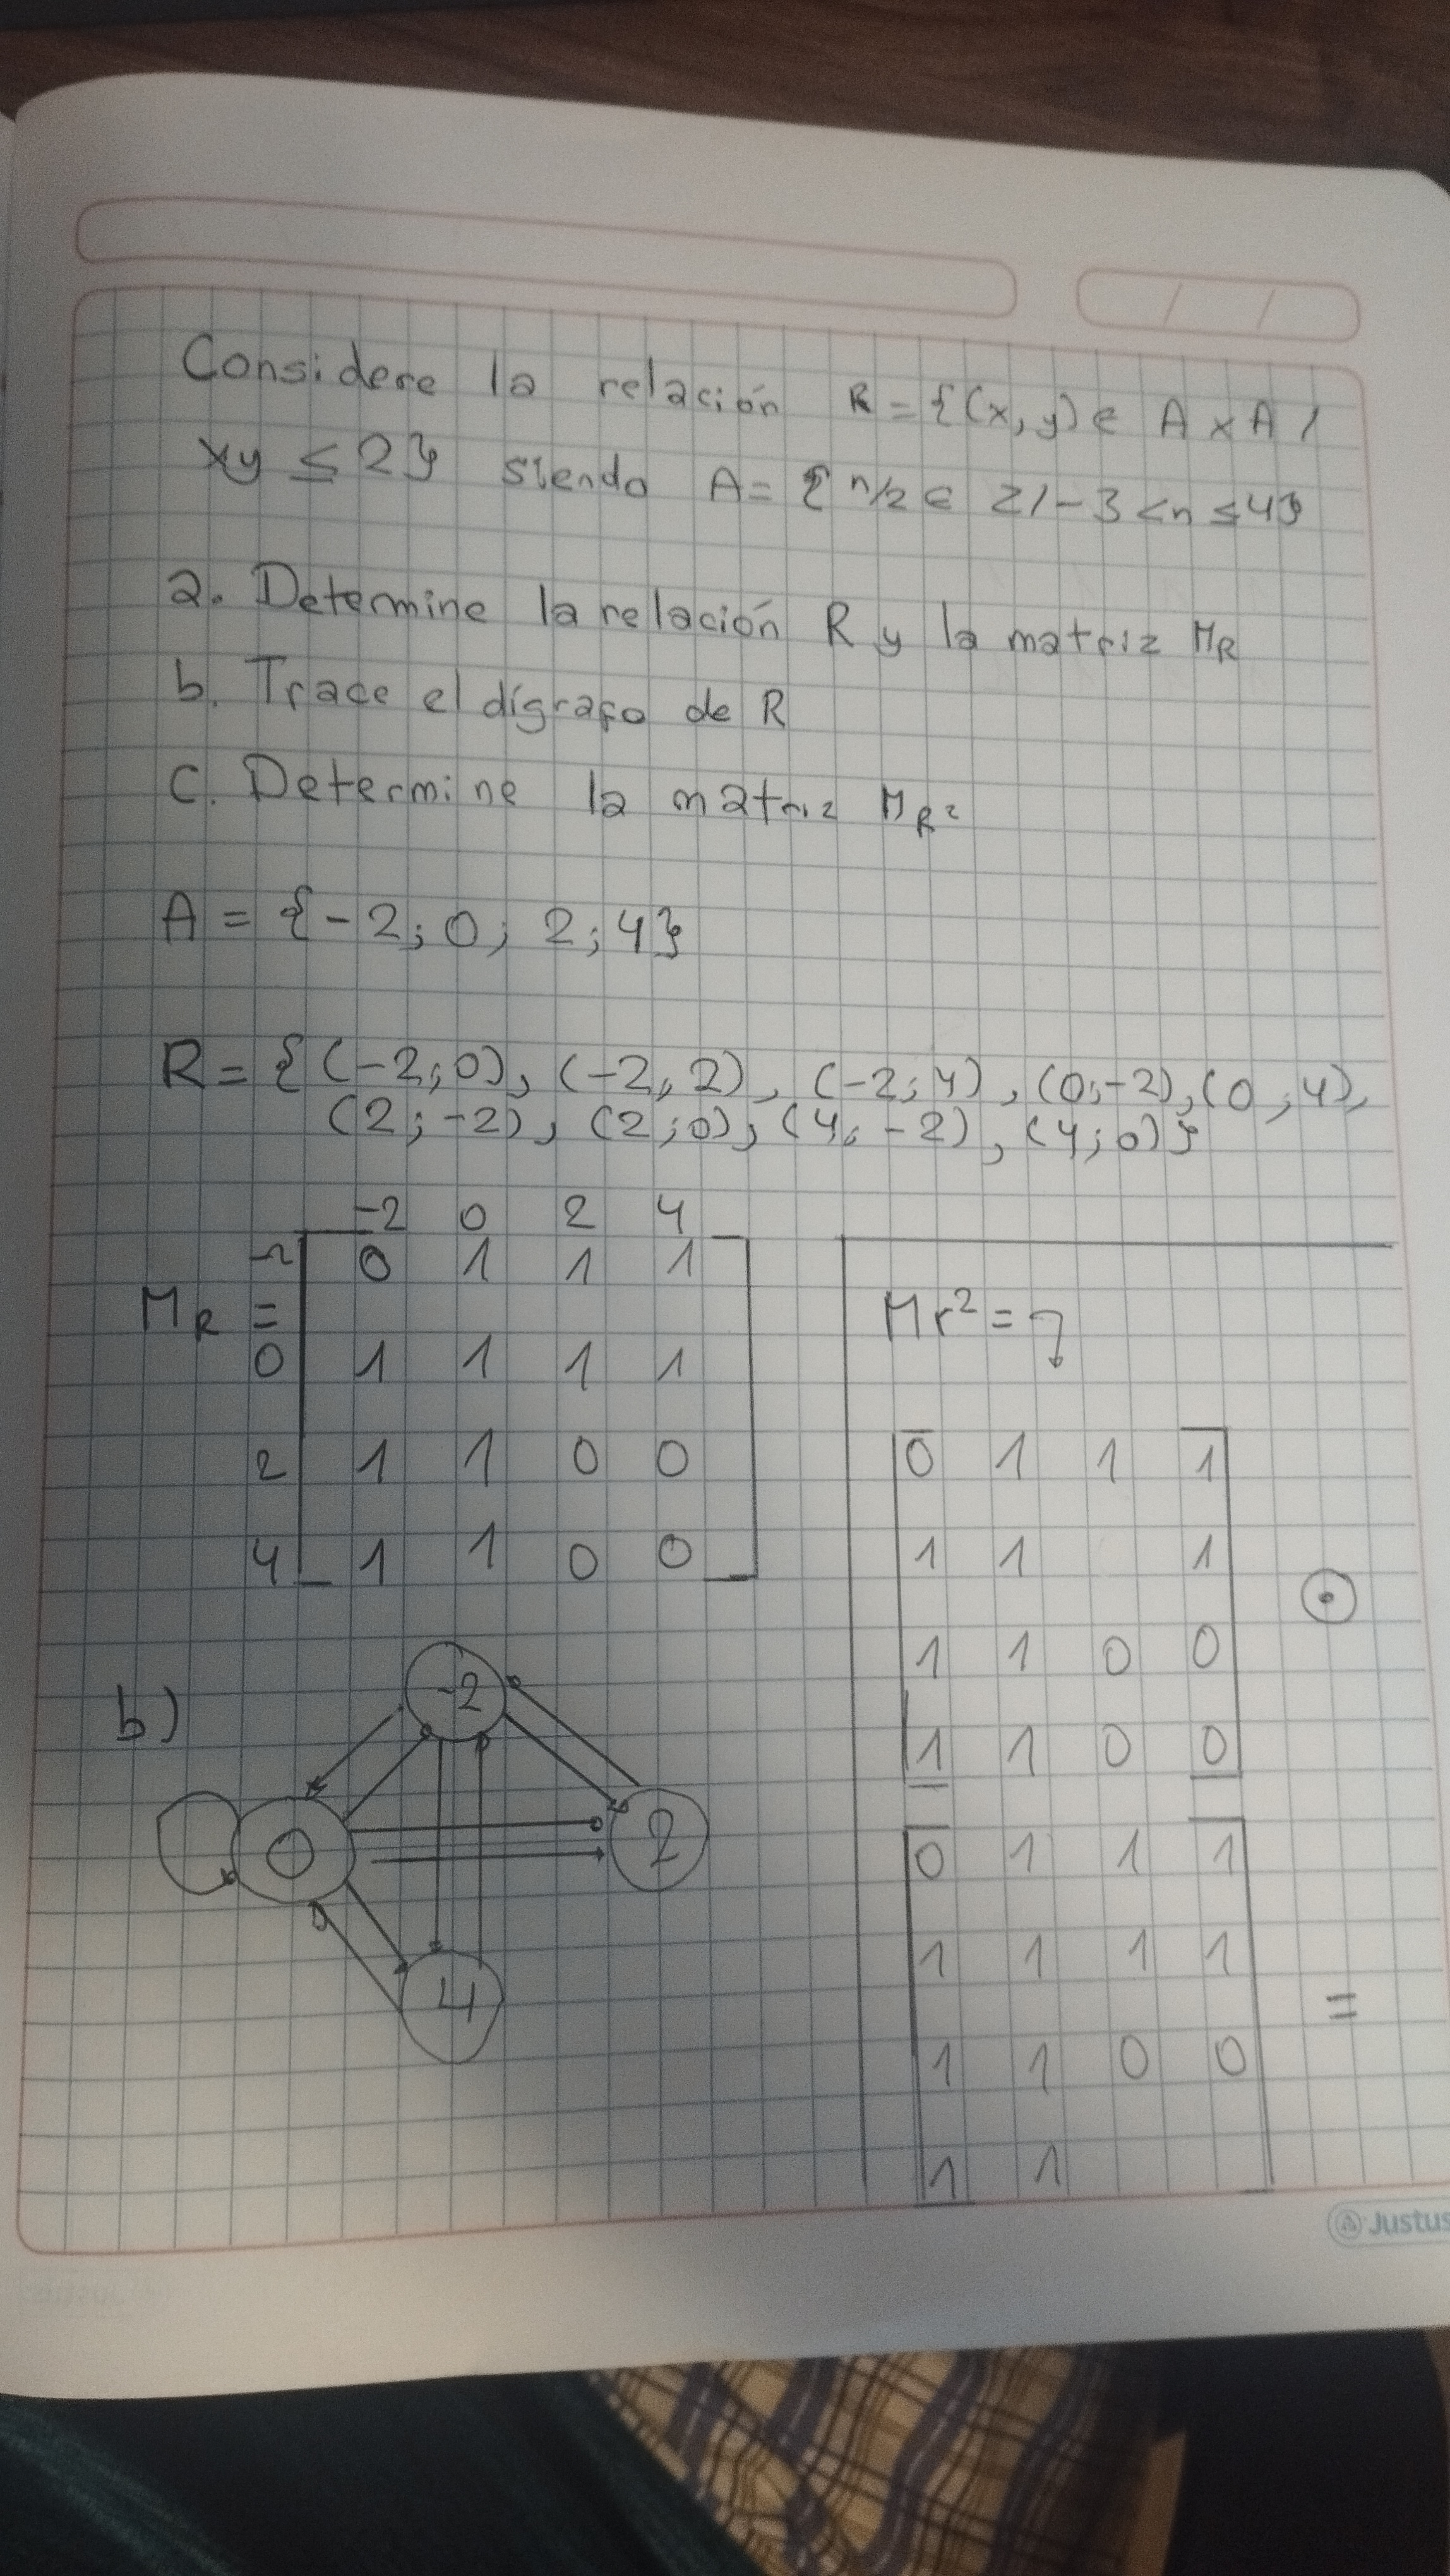 Considere la relación R = {(x, y) ∈ A x A /
xy ≤ 2} siendo A = { n/2 ∈ Z / -3 < n ≤ 4}
a. Determine la relación R y la matriz MR
b. Trace el dígrafo de R
c. Determine la matriz MR²
A = {-2; 0; 2; 4}
R = {(-2;0), (-2;2), (-2;4), (0;-2), (0;4),
(2;-2), (2;0), (4;-2), (4;0)}
-2 0 2 4
-2 0 1 1 1
MR =
0 1 1 1 1
2 1 1 0 0
4 1 1 0 0
b)
-2
0
2
4
Mr² =
0 1 1 1
1 1 1
1 1 0 0
1 1 0 0
⊙
0 1 1 1
1 1 1 1
1 1 0 0
1 1
=
Justus